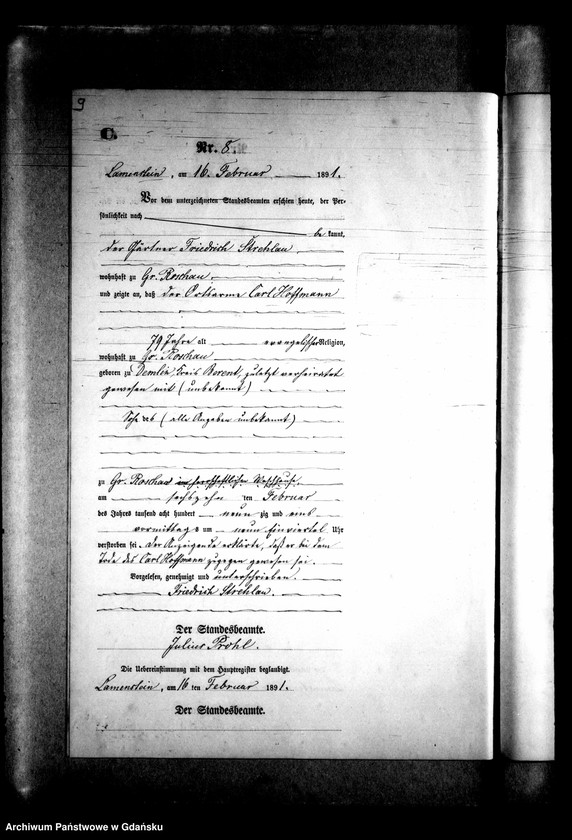 9
C.
Nr. 8.
Lamenstein, am 16. Februar 1891.
Vor dem unterzeichneten Standesbeamten erschien heute, der Per-
sönlichkeit nach
be kannt,
der Gärtner Friedrich Strehlau
wohnhaft zu Gr. Roschau
und zeigte an, daß der Ortsarme Carl Hoffmann
79 Jahre alt evangelischer Religion,
wohnhaft zu Gr. Roschau
geboren zu Demlin, Kreis Berent, zuletzt verheiratet
gewesen mit (unbekannt)
Sohn des (alle Angaben unbekannt)
zu Gr. Roschau im herrschaftlichen
am sechszehn ten Februar
des Jahres tausend acht hundert neun zig und eins
vormittags um neun einviertel Uhr
verstorben sei. Der Anzeigende erklärte, daß er bei dem
Tode des Carl Hoffmann zugegen gewesen sei.
Vorgelesen, genehmigt und unterschrieben.
Friedrich Strehlau.
Der Standesbeamte.
Julius Pröhl.
Die Uebereinstimmung mit dem Hauptregister beglaubigt.
Lamenstein, am 16 ten Februar 1891.
Der Standesbeamte.
Archiwum Państwowe w Gdańsku